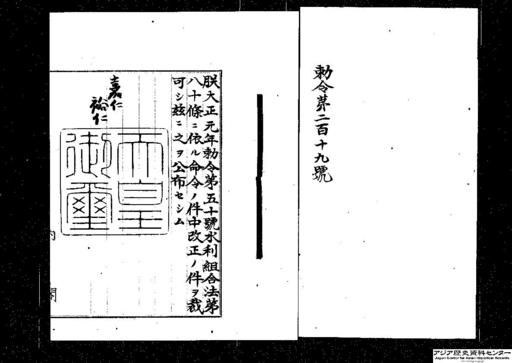 勅令第二百十九號
朕大正元年勅令第五十號水利組合法第
八十條ニ依ル命令ノ件中改正ノ件ヲ裁
可シ茲ニ之ヲ公布セシム
嘉仁
裕仁
天皇
御璽
内 閣
アジア歴史資料センター
Japan Center for Asian Historical Records